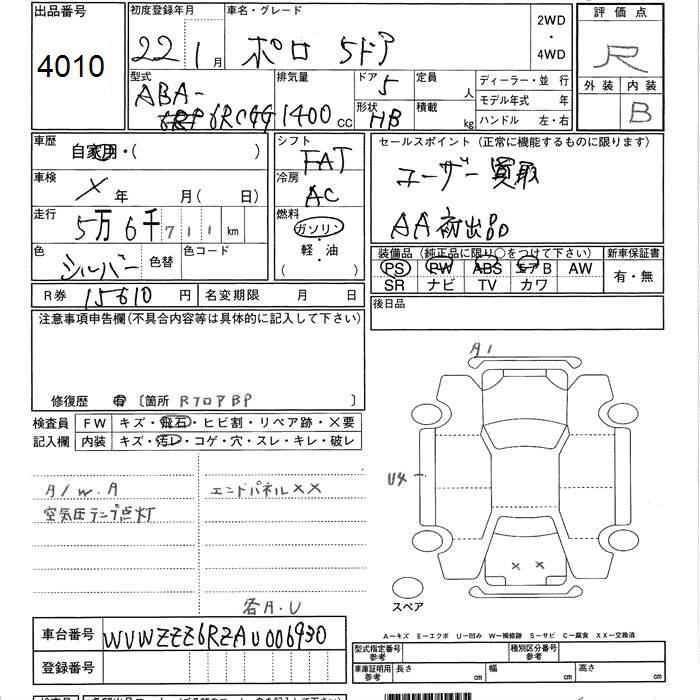 出品番号 初度登録年月 車名・グレード 2WD ・ 4WD 評価点
4010 22 1月 ポロ 5ドア R
型式 排気量 ドア 5 定員 人 ディーラー・並行 外装 内装
ABA- 6RCGG 1400cc 形状 HB 積載 kg モデル年式 年 B
ハンドル 左・右
車歴 自家用・( ) シフト FAT セールスポイント(正常に機能するものに限ります)
車検 × 年 月( 日) 冷房 AC ユーザー買取
走行 5万6千711km 燃料 ガソリン AA初出品
色 シルバー 色替 色コード 軽・油 ( )
装備品(純正品に限り○をつけて下さい) 新車保証書
PS PW ABS エアB AW 有・無
SR ナビ TV カワ
R券 15610円 名変期限 月 日 後日品
注意事項申告欄(不具合内容等は具体的に記入して下さい)
修復歴 有 〔箇所 RフロアBP
検査員 FW キズ・飛石・ヒビ割・リペア跡・×要
記入欄 内装 キズ・汚レ・コゲ・穴・スレ・キレ・破レ
A1
U4
A/W.A エンドパネル××
空気圧ランプ点灯
× ×
スペア
各A.U
車台番号 WVWZZZ6RZAU006930
A―キズ E―エクボ U―凹み W―補修跡 S―サビ C―腐食 XX―交換済
型式指定番号 参考 種別区分番号 参考
登録番号 車庫証明用 参考 長さ cm 幅 cm 高さ cm